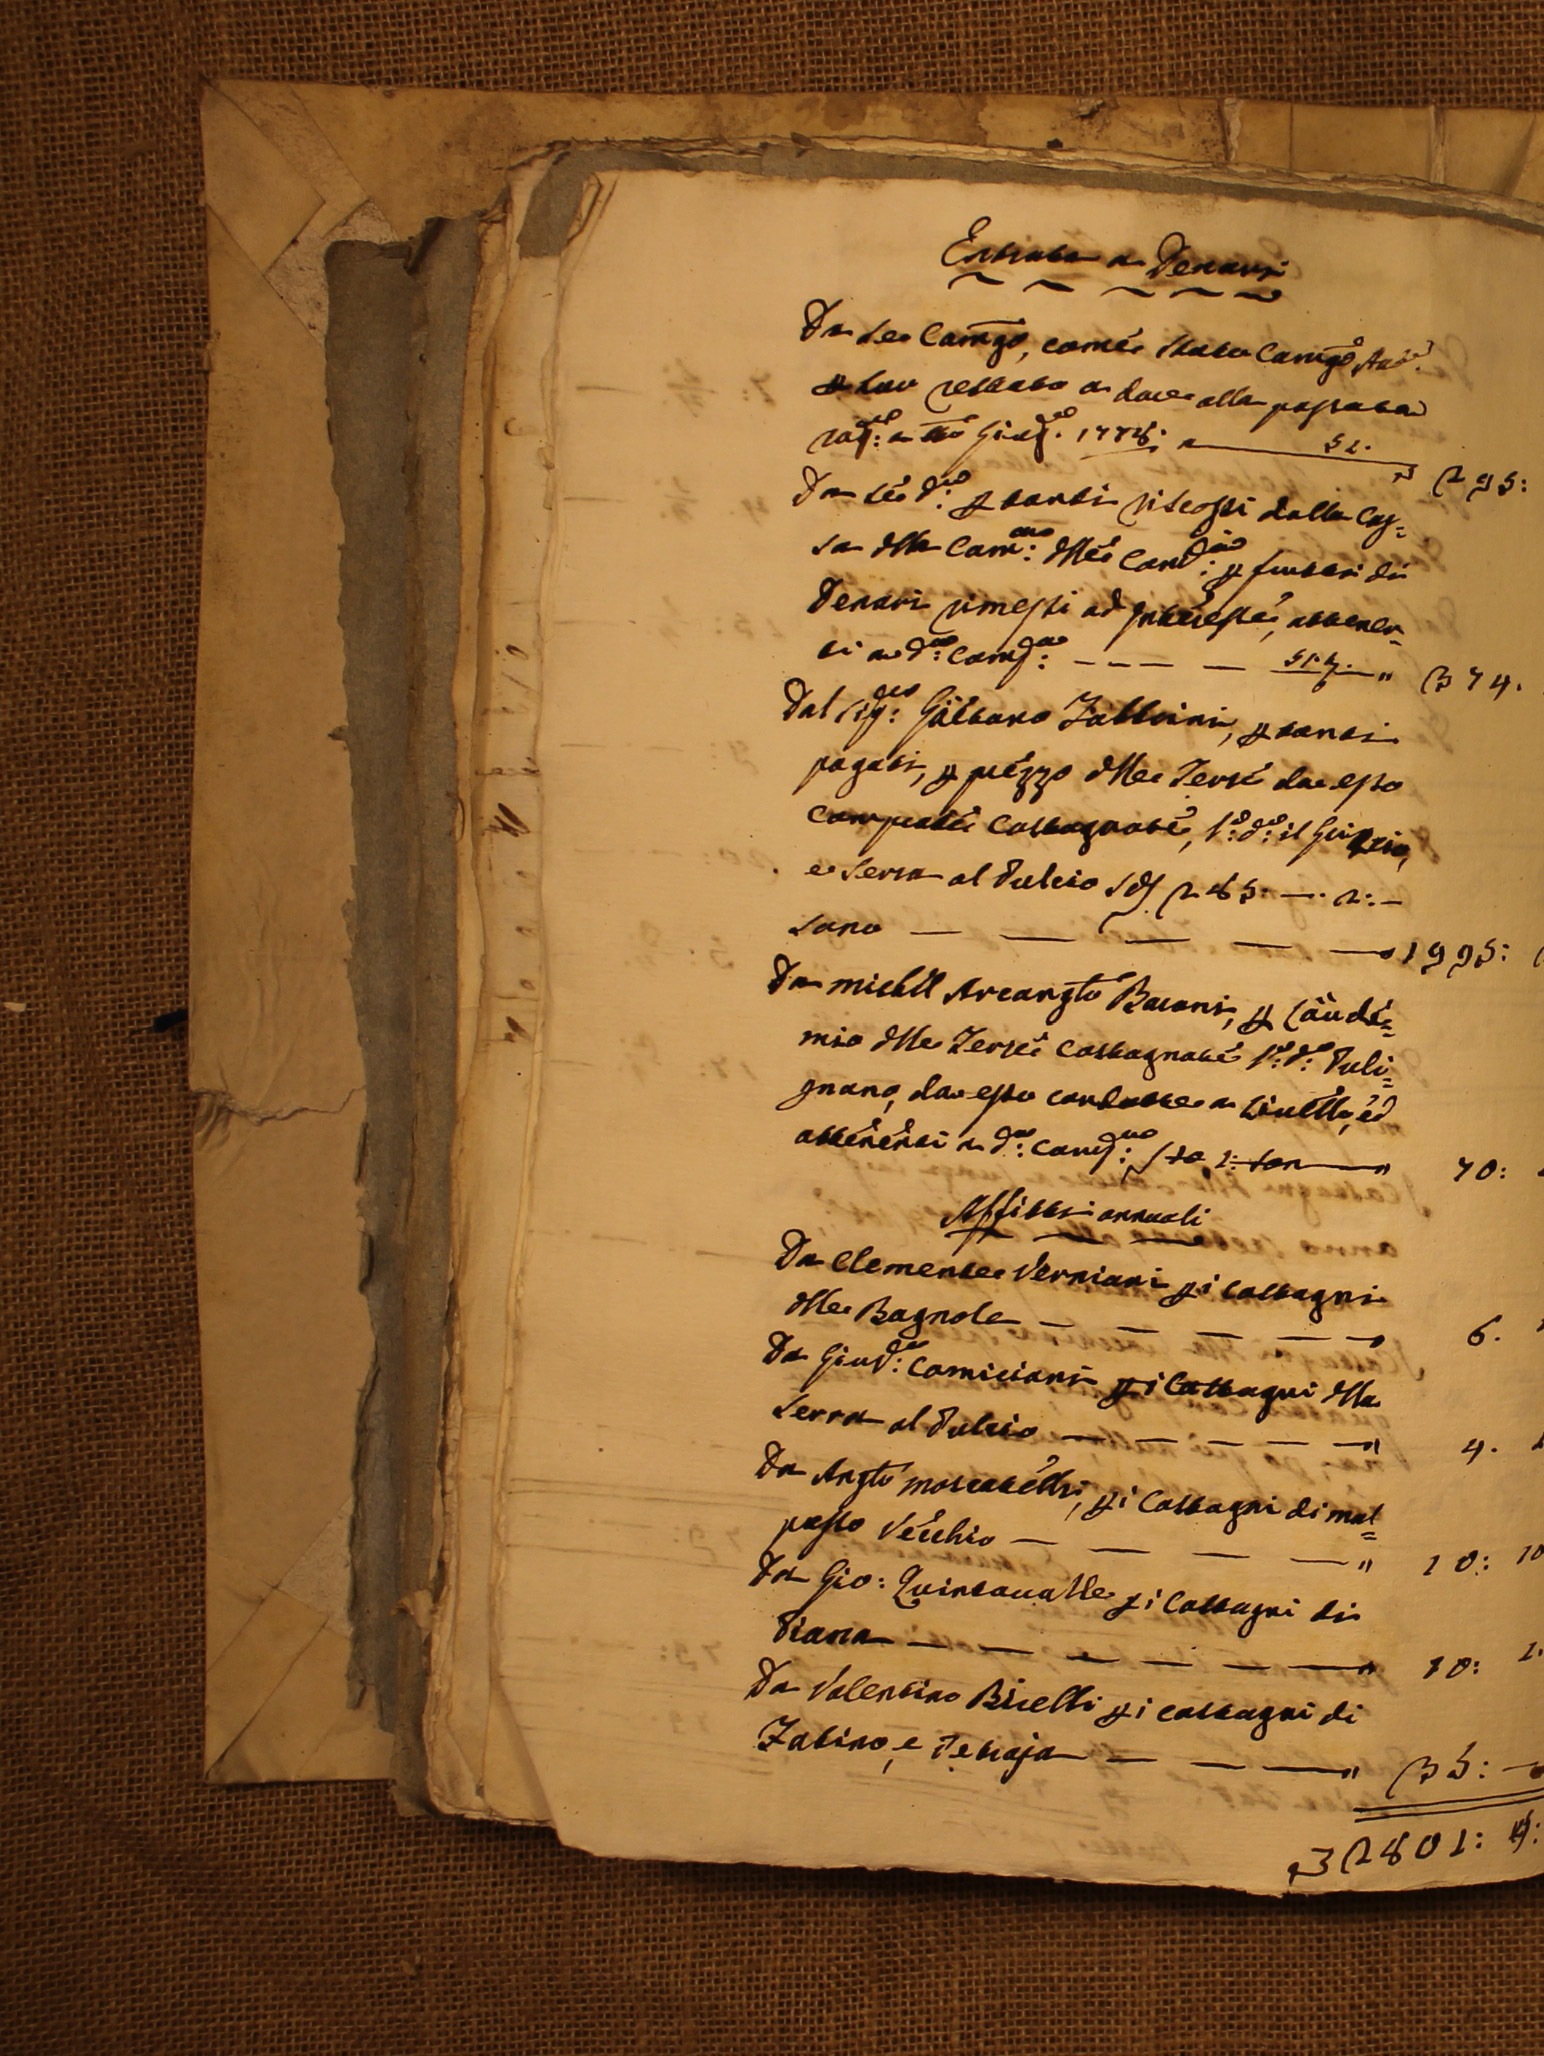 Entrata a Denari
Da me Camgo, come stato Camgo Ant.
p lav restato a dare alla passata
rag: a tto Giug. 1778. a 52. 295:
Da me do p tanti riscossi dalla Cas=
sa dlla Cam: dlle Comp: p frutti di
Denari rimessi ad Interesse, attenen
ti a da: Comp: 51.4. 374.
Dal Sig: Gaetano Fabbrini, p tanti
pagati, p prezzo dlle Terre da esso
comprate Castagnate, l: d: il
e Serra al Pulcio sd 285: —. 2:—
sono 1995:
Da Michel Arcanglo Baconi, p Laude=
mio dlle Terre Castagnate l: d: Puli=
gnano, da esso condotte a Livello, ed
attenenti a da: Comp: 70:
Affitti annuali
Da Clemente Verniani p i Castagni
dlle Bagnole 6.
Da Giud: Comiciani p i Castagni dlla
Serra al Pulcio 4.
Da Anglo Moscatelli, p i Castagni di mal=
passo Vecchio 10: 10
Da Gio: Quintavalle p i Castagni di
Piana 10: 1.
Da Valentino Bicelli p i castagni di
Fabino, e Petraja 35: —
2801: